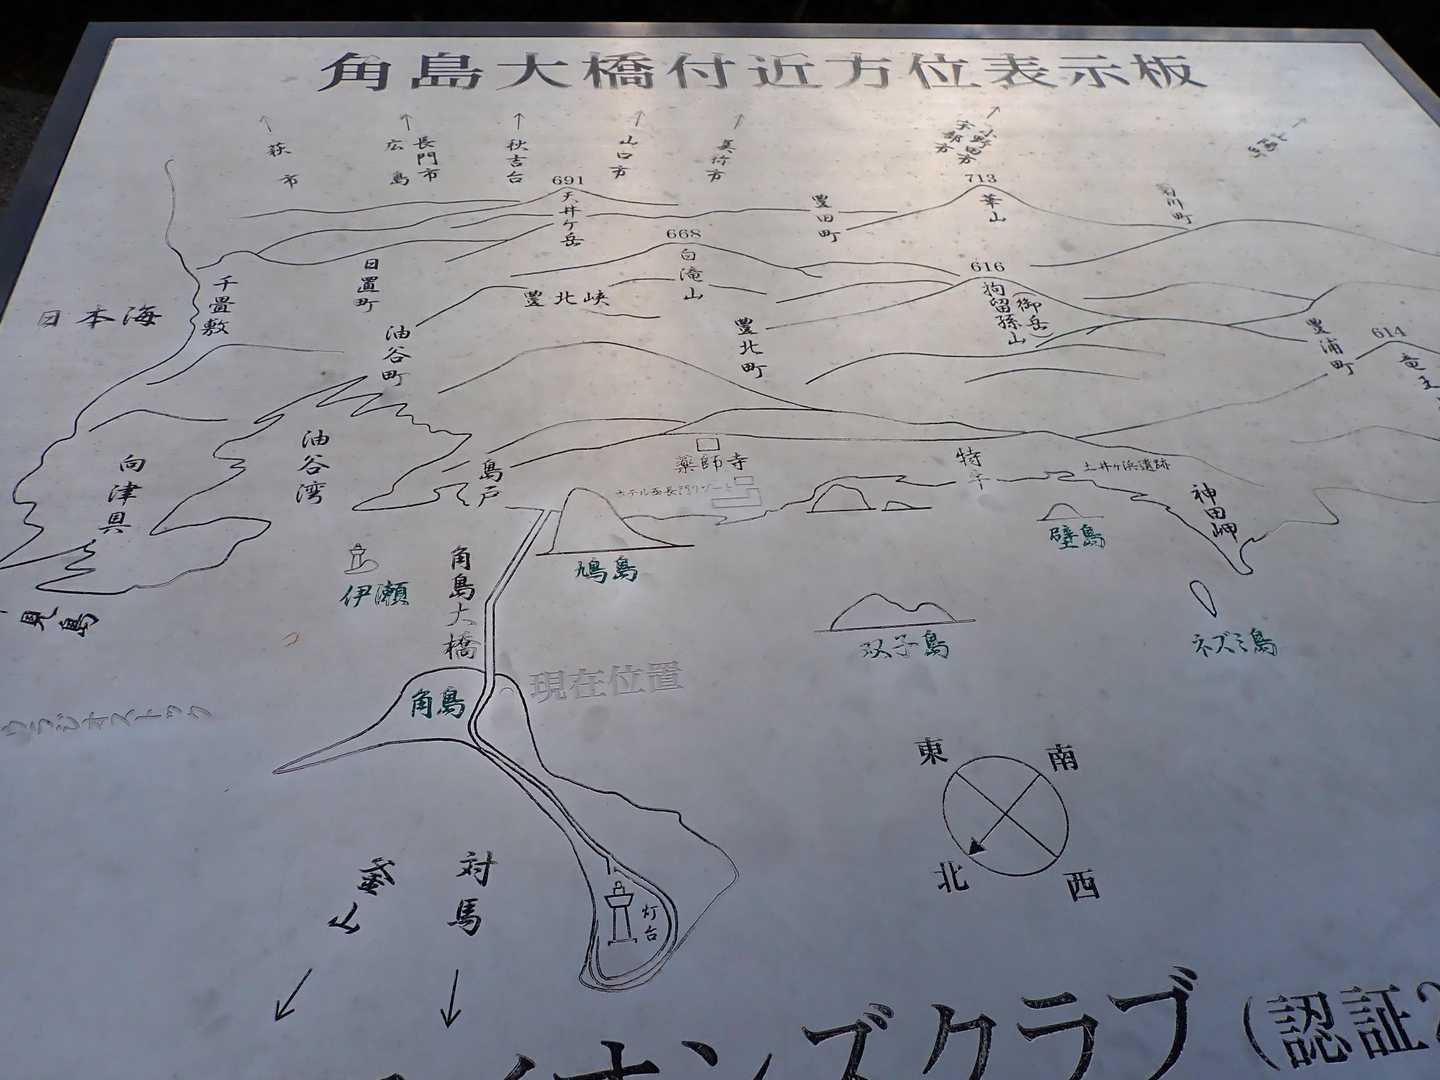 角島大橋付近方位表示板
萩市
広島
長門市
秋吉台
山口市
美祢市
宇部市
小野田市
691
天井ヶ岳
豊田町
713
華山
菊川町
668
白滝山
616
拘留孫山
(御岳)
千畳敷
日置町
豊北峡
日本海
油谷町
豊北町
豊浦町
614
竜王
向津具
油谷湾
島戸
薬師寺
ホテル西長門リゾート
特牛
土井ヶ浜遺跡
神田岬
角島大橋
鳩島
壁島
伊瀬
双子島
ネズミ島
見島
角島
現在位置
東
南
北
西
釜山
対馬
灯台
イオンズクラブ(認証2